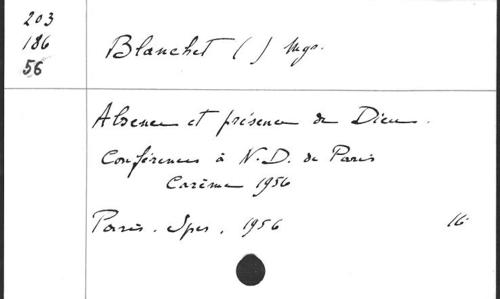 203
186
56
Blanchet ( ) Mgr.
Absence et présence de Dieu.
Conférences à N.D. de Paris
Carême 1956
Paris. Spes, 1956 16